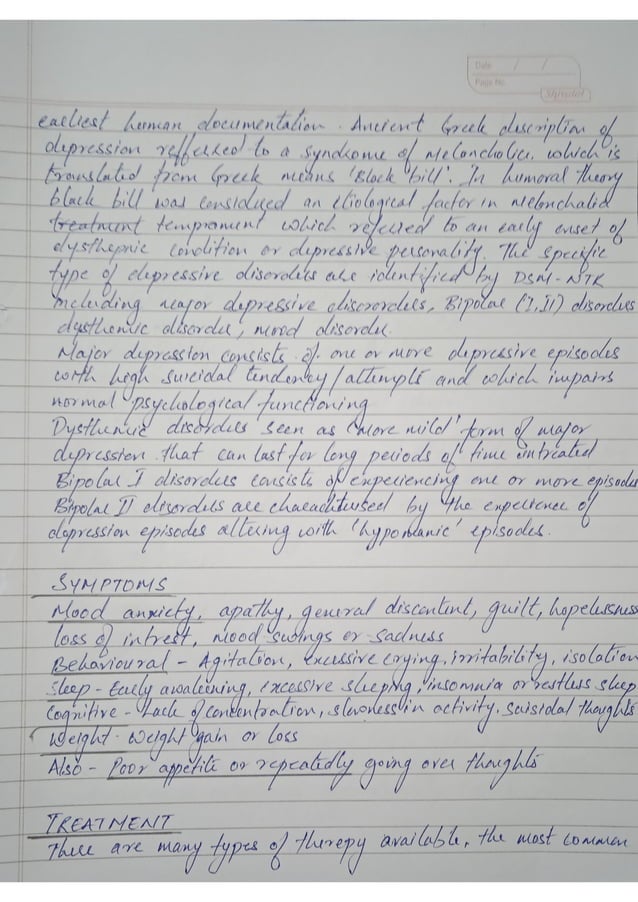 Date / /
Page No.
Shivalal
earliest human documentation. Ancient Greek description of
depression reffered to a syndrome of Melancholia, which is
translated from Greek means 'Black bill'. In humoral theory
black bill was considered an etiological factor in melonchalid
treatment temprament which referred to an early onset of
dysthepnic condition or depressive personality. The specific
type of depressive disorders are identified by DSM-NTR
including major depressive disorordes, Bipolar (I, II) disorders
dysthenic disorder, mood disorder.
Major depression consists of one or more depressive episodes
with high suicidal tendency/attempts and which impairs
normal psychological functioning
Dysthenic disorders seen as 'more mild' form of major
depression that can last for long periods of time untreated
Bipolar I disorders consists of experiencing one or more episodes
Bipolar II disorders are charactitused by the experience of
depression episodes altering with 'hypomanic' episodes.
SYMPTOMS
Mood anxiety, apathy, general discontent, guilt, hopelessness
loss of intrest, mood swings or sadness
Behavioural - Agitation, excessive crying, irritability, isolation
Sleep - Early awakening, excessive sleeping, insomnia or restless sleep
Cognitive - Lack of concentration, slowness in activity, suisidal thoughts
Weight - weight gain or loss
Also - Poor appetite or repeatedly going over thoughts
TREATMENT
There are many types of therepy available, the most common